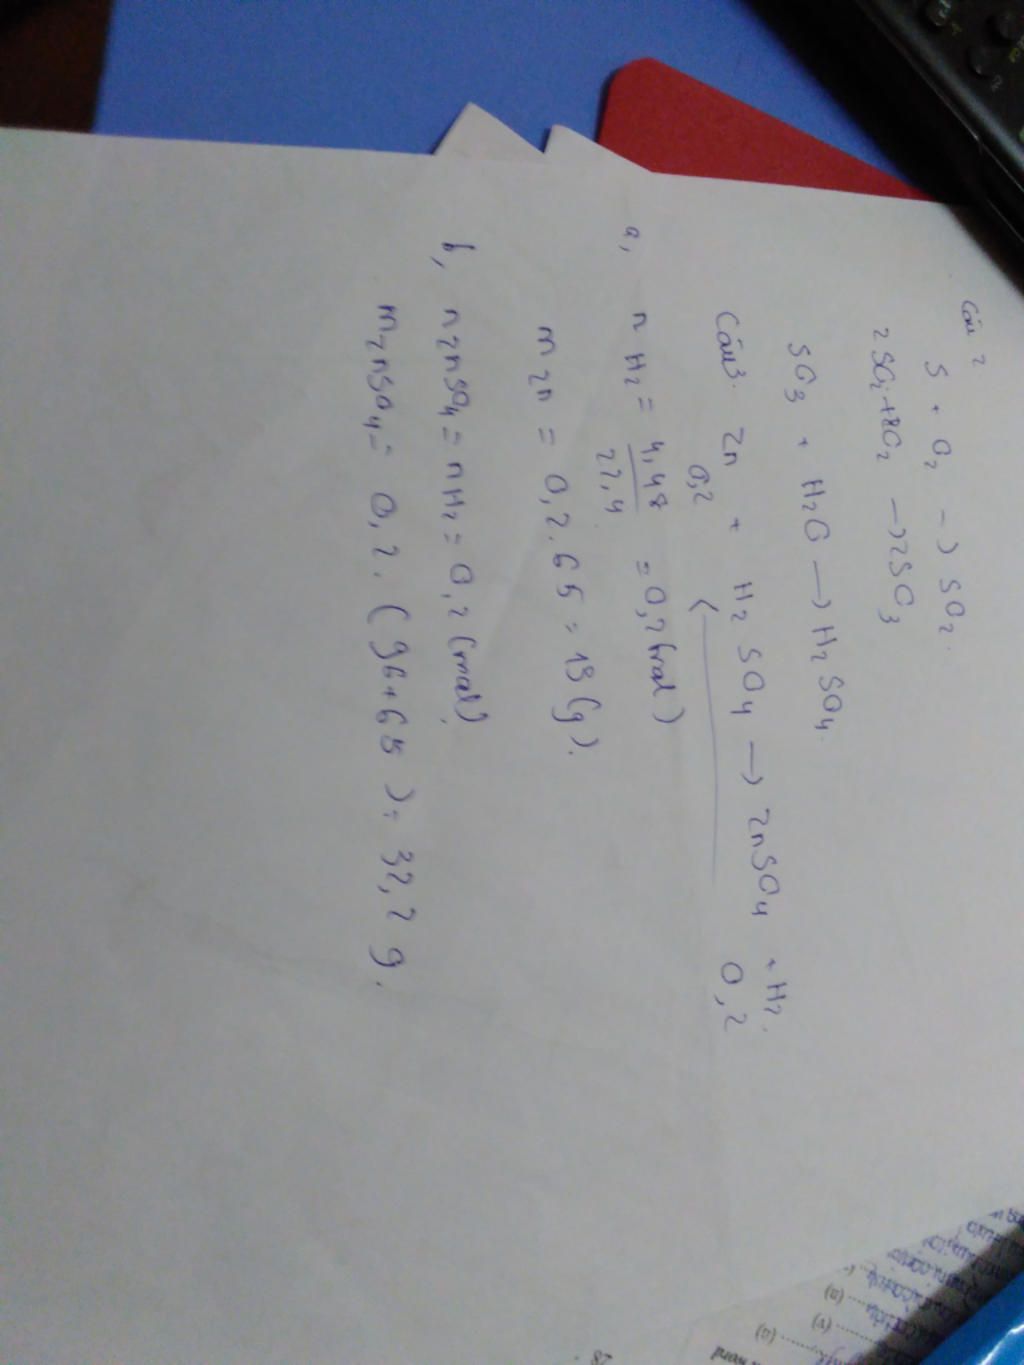 Câu 2
S + O2 → SO2.
2SO2 + O2 → 2SO3
SO3 + H2O → H2SO4.
Câu 3. Zn + H2SO4 → ZnSO4 + H2.
0,2 ← 0,2
a, nH2 = 4,48/22,4 = 0,2 (mol)
mZn = 0,2.65 = 13 (g).
b, nZnSO4 = nH2 = 0,2 (mol)
mZnSO4 = 0,2.(96+65) = 32,2 g.
word
(a)
(v)
(n)
28